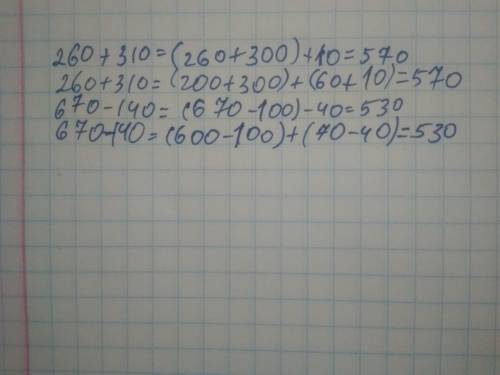 260+310=(260+300)+10=570
260+310=(200+300)+(60+10)=570
670-140=(670-100)-40=530
670-140=(600-100)+(70-40)=530